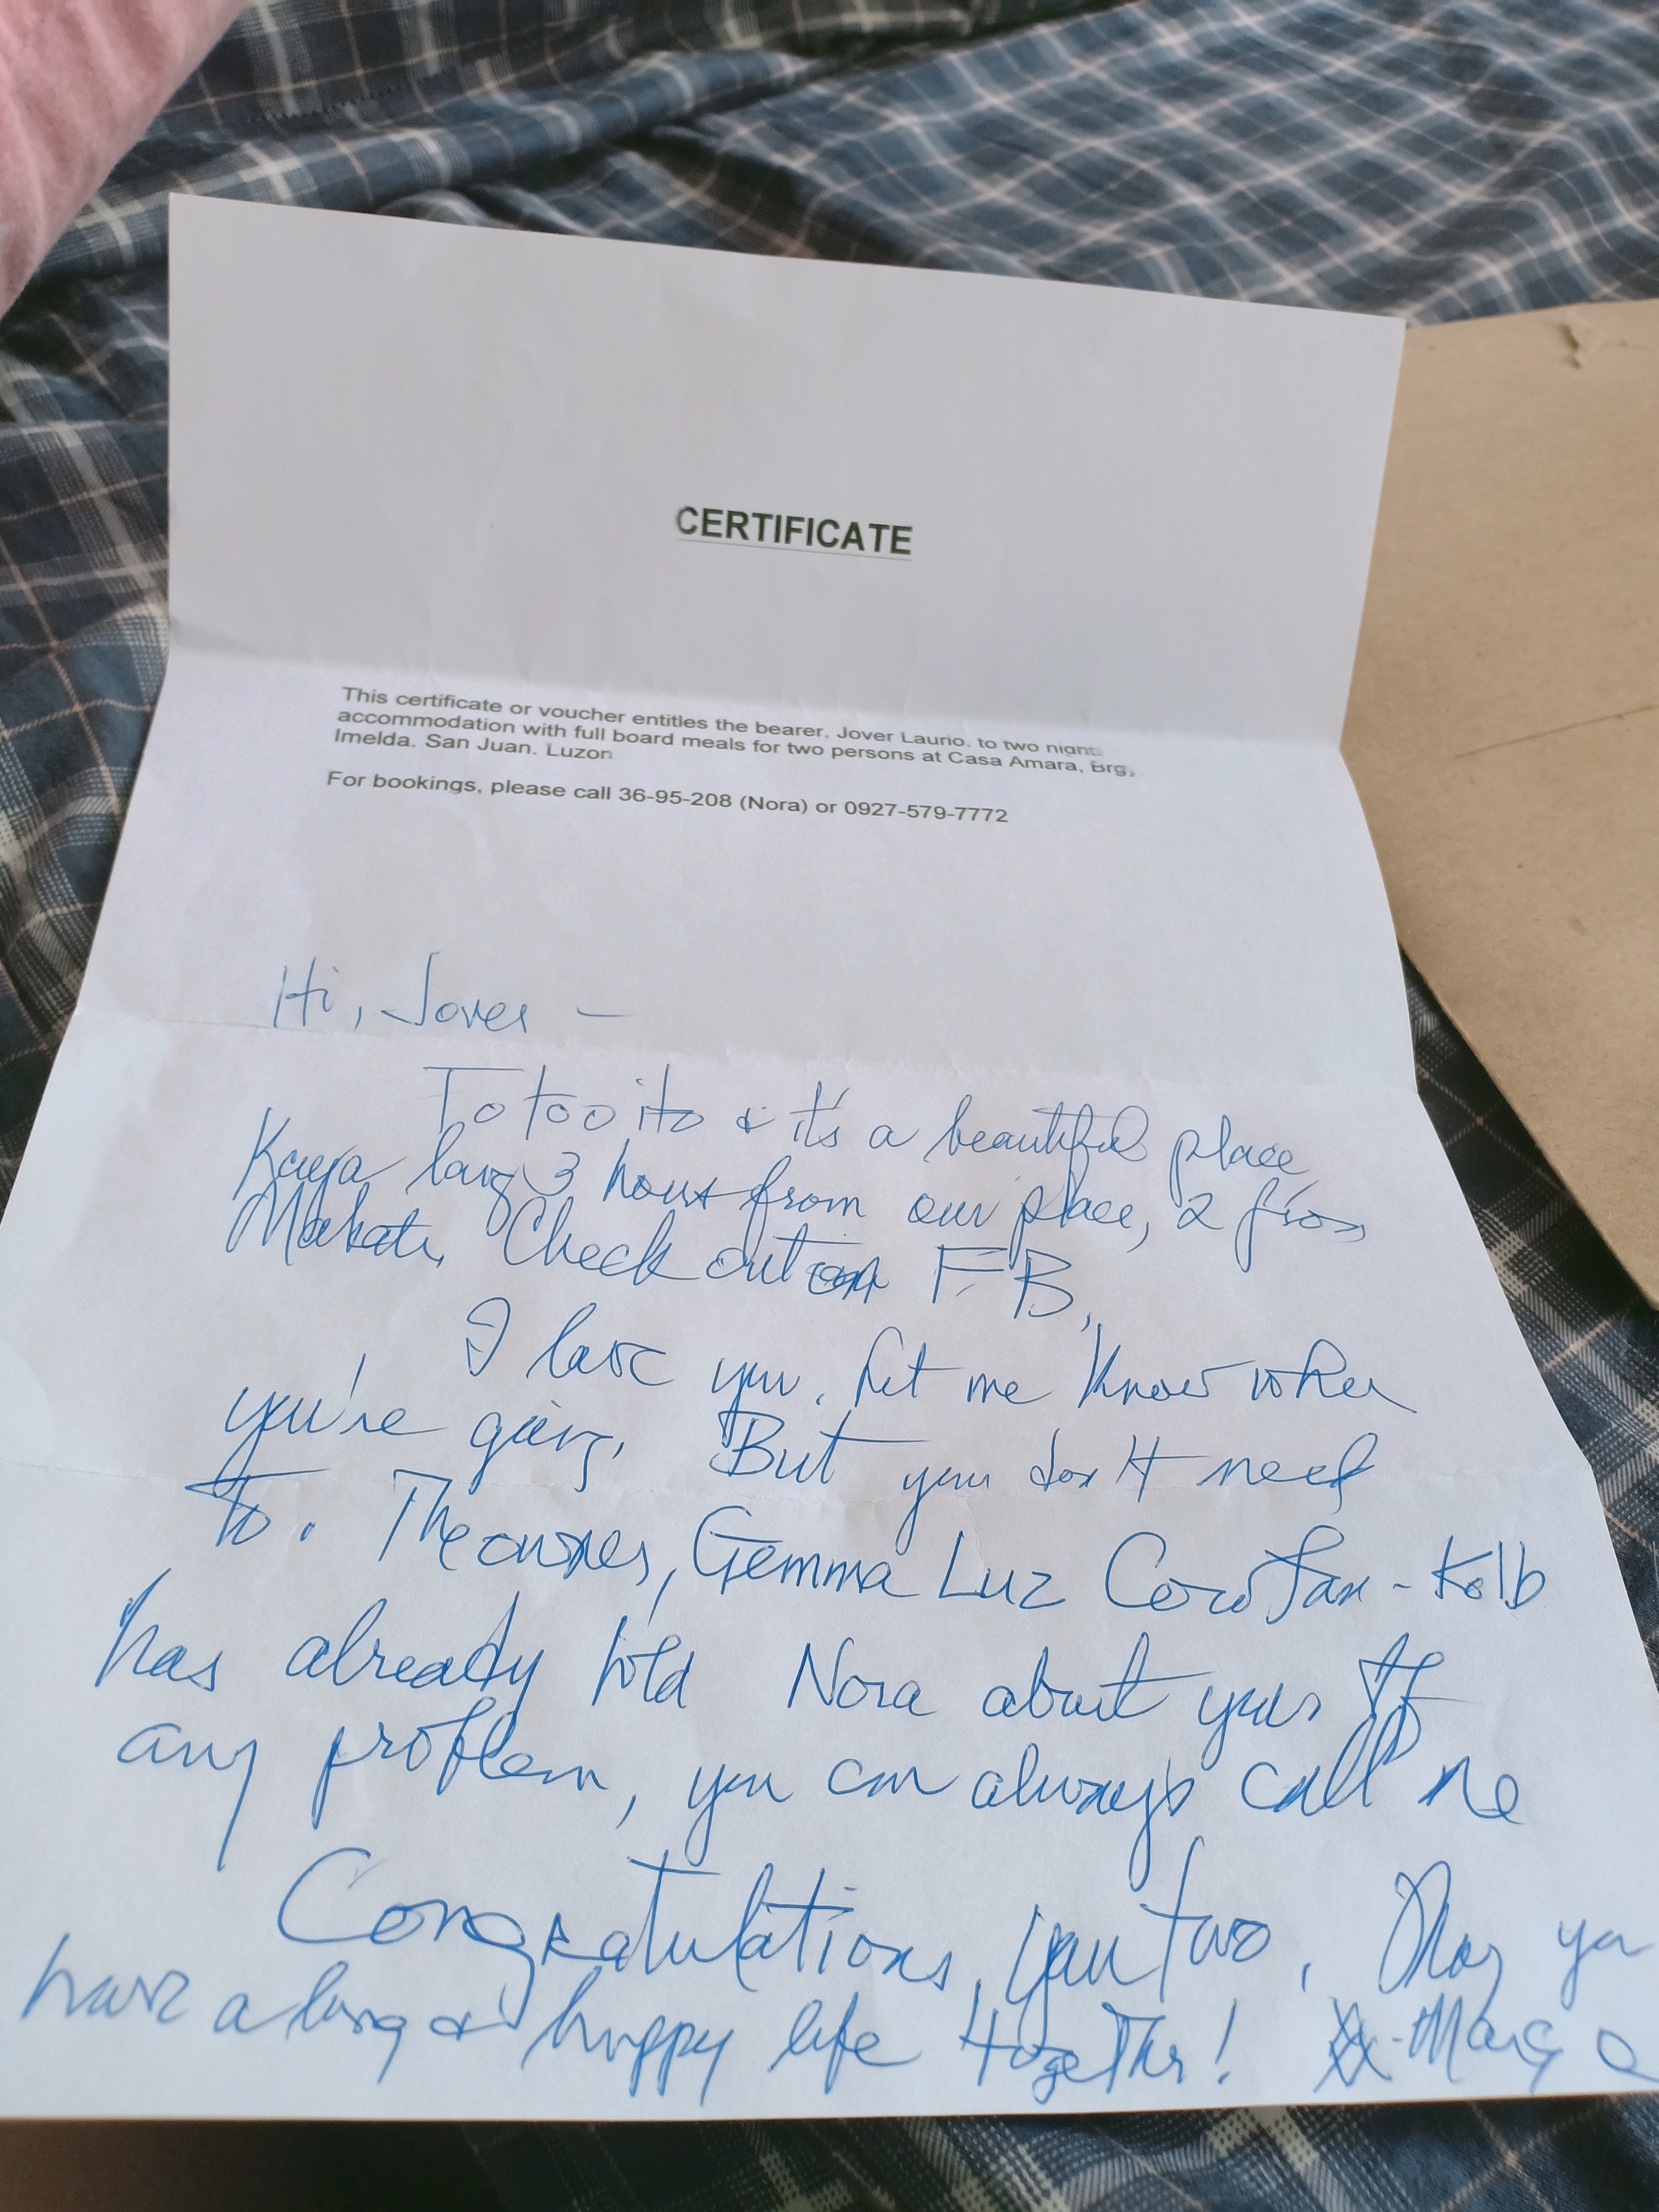 CERTIFICATE
This certificate or voucher entitles the bearer, Jover Laurio, to two night
accommodation with full board meals for two persons at Casa Amara, Brg,
Imelda, San Juan, Luzon
For bookings, please call 36-95-208 (Nora) or 0927-579-7772
Hi, Jover –
Totoo ito & it's a beautiful place
Kaya lang 3 hours from our place, 2 from
Makati. Check out on FB.
I love you. Let me know when
you're going. But you don't need
to. The owner, Gemma Luz -Kolb
has already told Nora about you. If
any problem, you can always call me
Congratulations, you two. May you
have a long & happy life together!